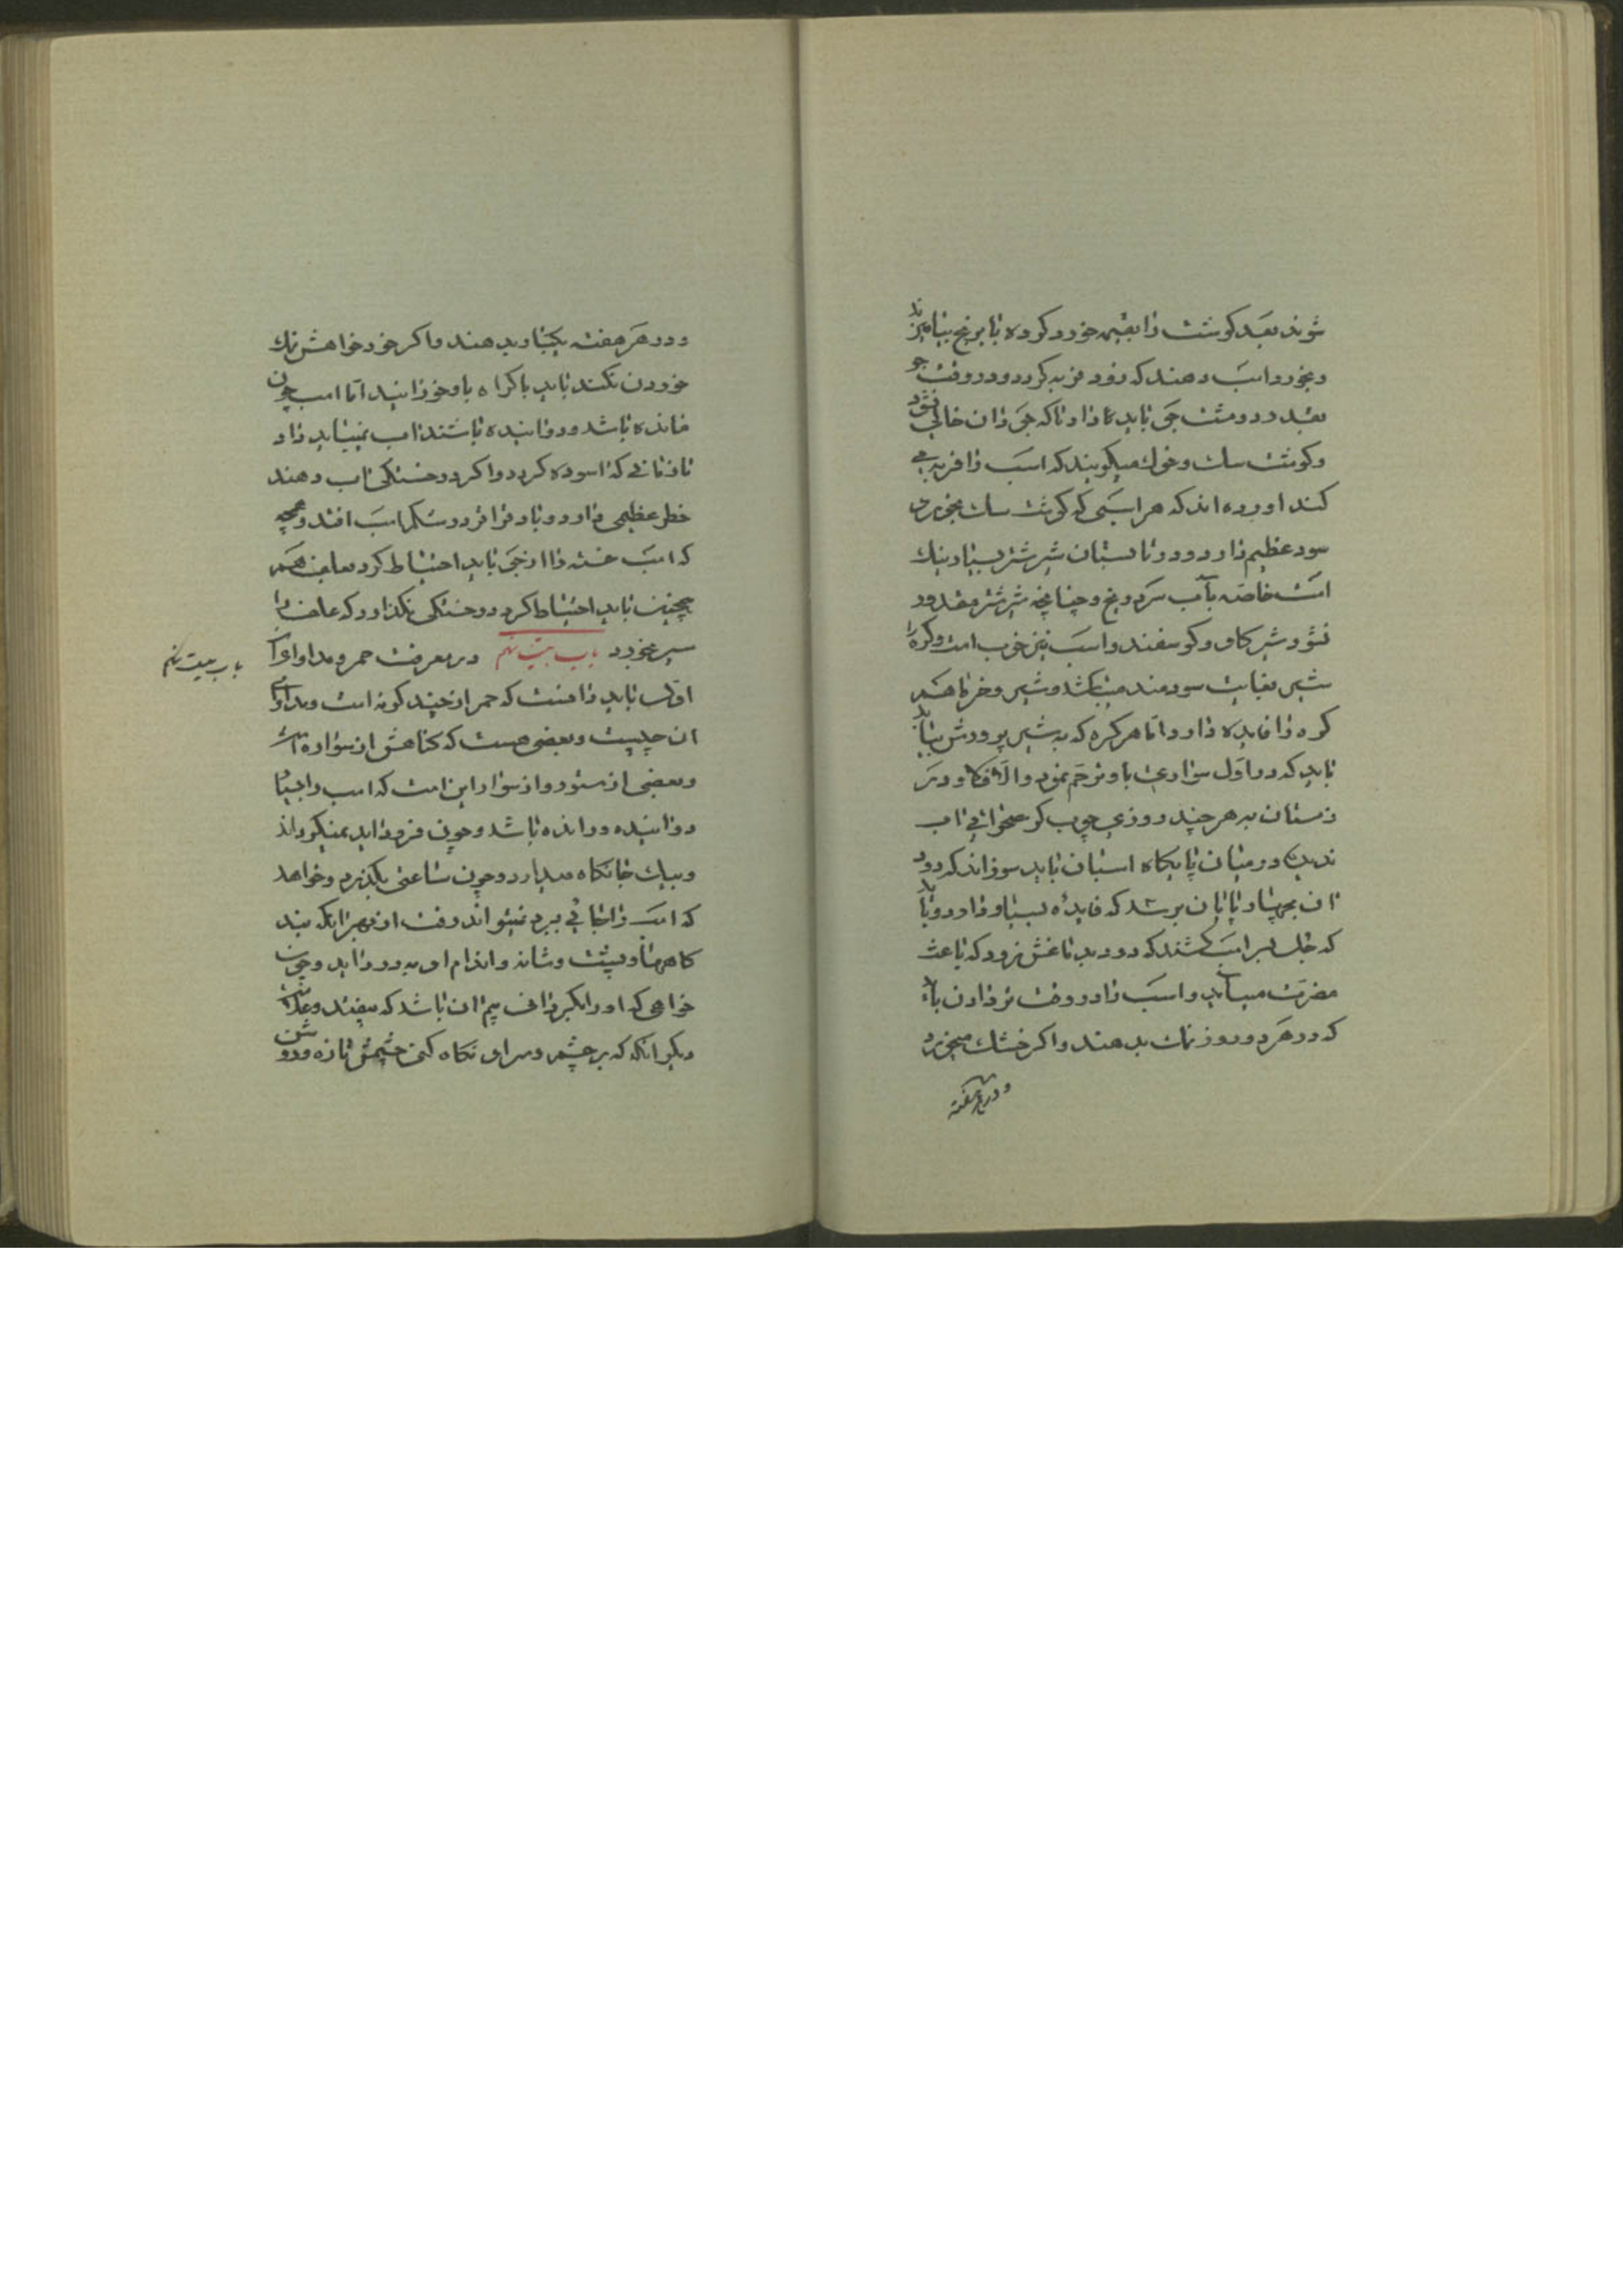 شوند بعد کوشت را بقیمه خورد کرده با برنج بیامیزند
و بخورد اسب دهند که زود فربه کردد و در وقت جو
بقدر دو مشت جو باید نکاه داد تا که جو دان خالی نشود
و کوشت سک و خوک میکویند که اسب را فربه می
کند اورده اند که هر اسبی که کوشت سک بخورد
سود عظیم دارد و در تابستان شیر شتر بسیار نیک
است خاصه بآب سرد و یخ و چنانچه شیر شتر مقدور
نشود شیر کاو و کوسفند و اسب نیز خوب است و کره را
شیر بغایت سودمند میباشد و شیر و خرما هم
کره را فایده دارد اما هر کره که به شیر پرورش یابد
باید که در اول سواری باو ترحم نمود و الا
زمستان به هر چند روزی چوب کز
در میان پایکاه اسبان باید سوزاند که دود
ان بچهار پایان برسد که فایده بسیار دارد و باید
که جل بر اسب کشند که دود بدماغش نرود که باعث
مضرت میباید و اسب را در وقت تر دادن باید
که در هر دو روز نمک بدهند و اکر خشک میخورد
و در هر هفته
و در هر هفته یکبار بدهند و اکر خود خواهش نمک
خوردن نکند باید باکراه باو خورانید اما اسب چون
مانده باشد و دوانیده باشند اب نمیباید داد
تا زمانی که اسوده کردد و اکر در خستکی اب دهند
خطر عظیمی دارد و باد فرا در شکم اسب افتد و همچه
که اسب خسته را از جو باید احتیاط کرد بعلف هم
همچنین باید احتیاط کرد در خستکی نکذارد که علف را
سیر بخورد باب بیست نهم در معرفت حمر و مداوای آن
باب بیست نهم
اول باید دانست که حمر از چند کونه است و مداوای
ان چیست و بعضی هست که کناهش از سواره است
و بعضی از ستور و از سوار این است که اسب را بسیار
دوانیده و رانده باشد و چون فرود اید نمیکرداند
و بیک جایکاه میدارد و چون ساعتی بکذرد و خواهد
که اسب را بجائی ببرد نمیتواند رفت از بهر انکه بند
کاهها و پشت و شانه و اندام او بدرد اید و چون
خواهی که او را بکیر بیم ان باشد که بیفتد و علامت
دیکر انکه که بر چشم و سر او نکاه کنی چشمش تازه و روشن